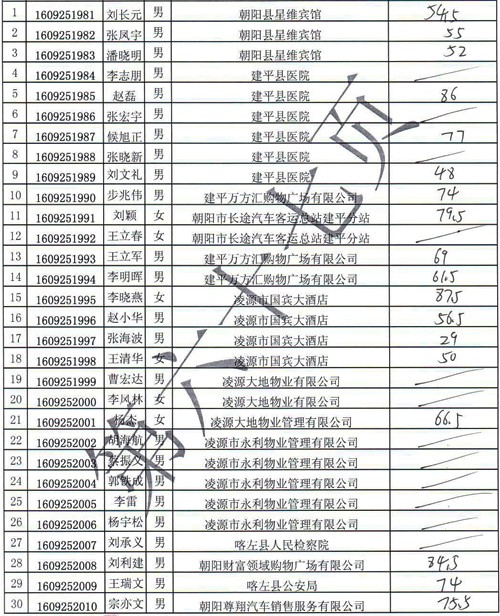 1 1609251981 刘长元 男 朝阳县星维宾馆 54.5
2 1609251982 张凤宇 男 朝阳县星维宾馆 55
3 1609251983 潘晓明 男 朝阳县星维宾馆 52
4 1609251984 李志朋 男 建平县医院
5 1609251985 赵磊 男 建平县医院 86
6 1609251986 张宏宇 男 建平县医院
7 1609251987 候旭正 男 建平县医院 77
8 1609251988 张晓新 男 建平县医院
9 1609251989 刘文礼 男 建平县医院 48
10 1609251990 步兆伟 男 建平万方汇购物广场有限公司 74
11 1609251991 刘颖 女 朝阳市长途汽车客运总站建平分站 79.5
12 1609251992 王立春 女 朝阳市长途汽车客运总站建平分站
13 1609251993 王立军 男 建平万方汇购物广场有限公司 69
14 1609251994 李明晖 男 建平万方汇购物广场有限公司 61.5
15 1609251995 李晓燕 女 凌源市国宾大酒店 87.5
16 1609251996 赵小华 男 凌源市国宾大酒店 56.5
17 1609251997 张海波 男 凌源市国宾大酒店 29
18 1609251998 王清华 女 凌源市国宾大酒店 50
19 1609251999 曹宏达 男 凌源大地物业有限公司
20 1609252000 李凤林 女 凌源大地物业有限公司
21 1609252001 杨杰 女 凌源大地物业管理有限公司 66.5
22 1609252002 胡海航 男 凌源市永利物业管理有限公司
23 1609252003 张振义 男 凌源市永利物业管理有限公司
24 1609252004 郭铁成 男 凌源市永利物业管理有限公司
25 1609252005 李雷 男 凌源市永利物业管理有限公司
26 1609252006 杨宇松 男 凌源市永利物业管理有限公司
27 1609252007 刘承义 男 喀左县人民检察院
28 1609252008 刘利建 男 朝阳财富领域购物广场有限公司 84.5
29 1609252009 王瑞文 男 喀左县公安局 74
30 1609252010 宗亦文 男 朝阳尊翔汽车销售服务有限公司 75.5
第六十七页